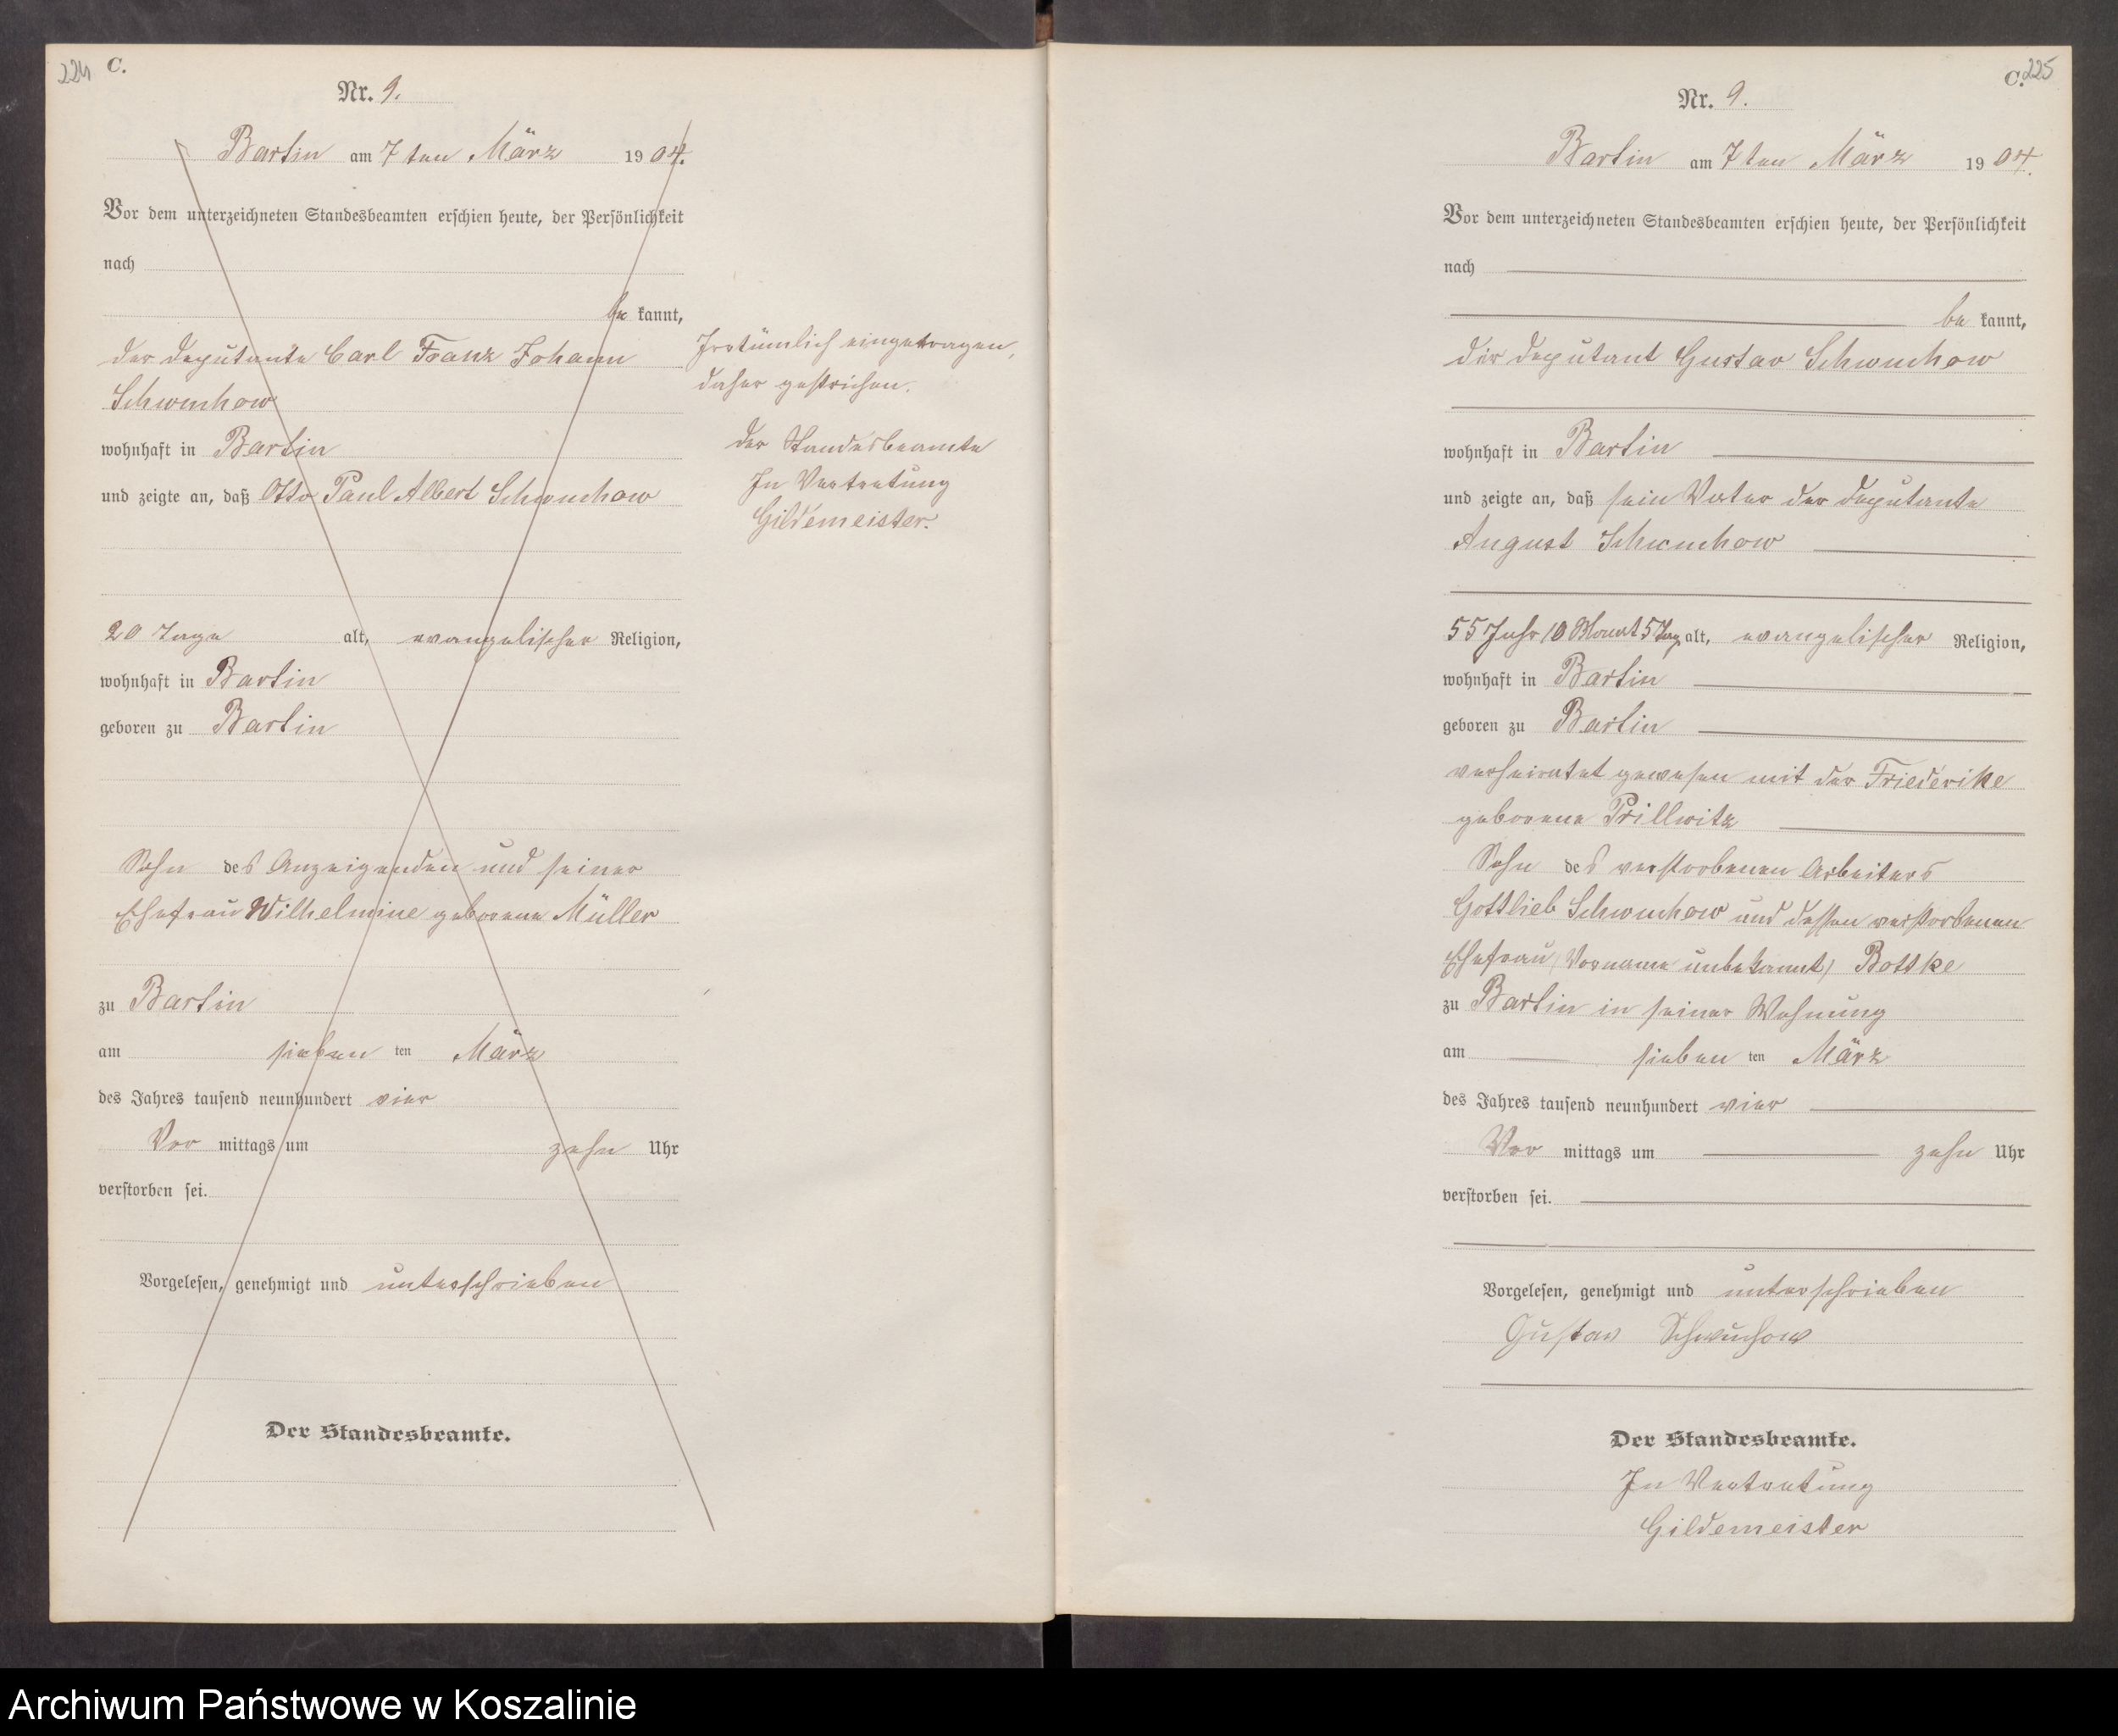 224 C.
Nr. 9.
Bartin am 7 ten März 1904.
Vor dem unterzeichneten Standesbeamten erschien heute, der Persönlichkeit
nach
be kannt,
der Deputante Carl Franz Johann
Schwuchow
wohnhaft in Bartin
und zeigte an, daß Otto Paul Albert Schwuchow
20 Tage alt, evangelischer Religion,
wohnhaft in Bartin
geboren zu Bartin
Sohn des Anzeigenden und seiner
Ehefrau Wilhelmine geborene Müller
zu Bartin
am sieben ten März
des Jahres tausend neunhundert vier
Vor mittags um zehn Uhr
verstorben sei.
Vorgelesen, genehmigt und unterschrieben
Der Standesbeamte.
Irrtümlich eingetragen,
daher gestrichen.
Der Standesbeamte
In Vertretung
Gildemeister.
C. 225
Nr. 9.
Bartin am 7 ten März 1904.
Vor dem unterzeichneten Standesbeamten erschien heute, der Persönlichkeit
nach
be kannt,
der Deputant Gustav Schwuchow
wohnhaft in Bartin
und zeigte an, daß sein Vater der Deputante
August Schwuchow
55 Jahr 10 Monat 5 Tag alt, evangelischer Religion,
wohnhaft in Bartin
geboren zu Bartin
verheiratet gewesen mit der Friederike
geborene Prillwitz
Sohn des verstorbenen Arbeiters
Gottlieb Schwuchow und dessen verstorbenen
Ehefrau (Vorname unbekannt) Bottke
zu Bartin in seiner Wohnung
am sieben ten März
des Jahres tausend neunhundert vier
Vor mittags um zehn Uhr
verstorben sei.
Vorgelesen, genehmigt und unterschrieben
Gustav Schwuchow
Der Standesbeamte.
In Vertretung
Gildemeister
Archiwum Państwowe w Koszalinie